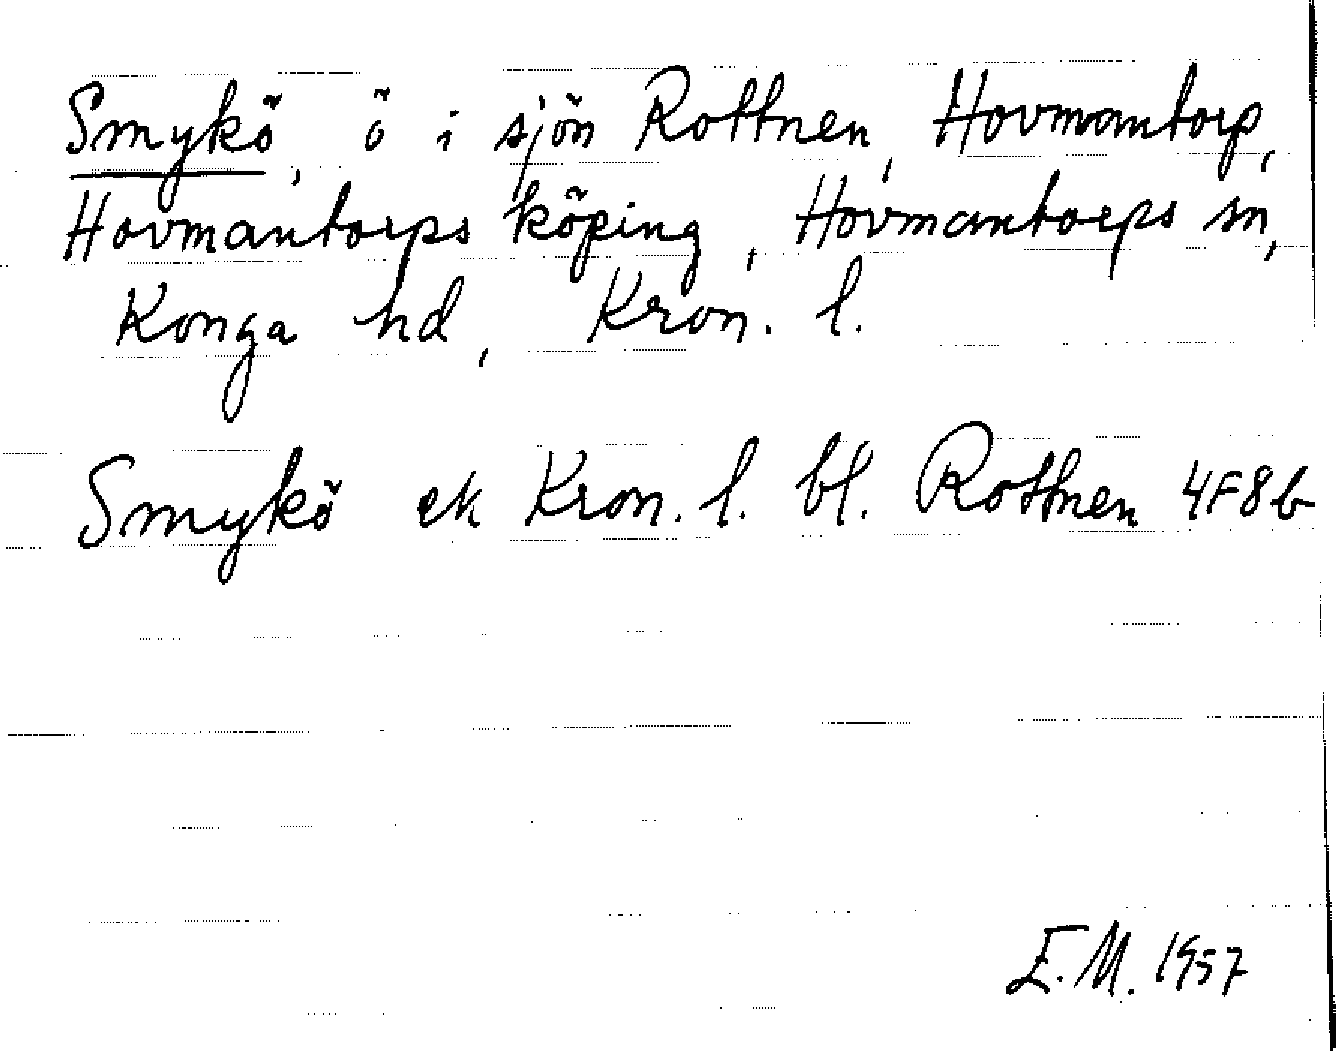 Smykö, ö i sjön Rottnen, Hovmantorp,
Hovmantorps köping, Hovmantorps sn,
Konga hd, Kron. l.
Smykö ek Kron. l. bl. Rottnen 4F8b
E.M. 1957